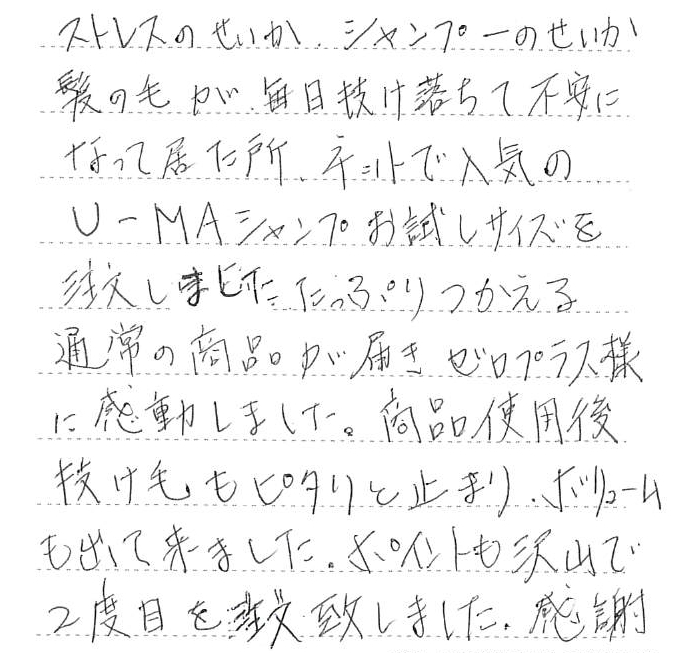 ストレスのせいか、シャンプーのせいか
髪の毛が毎日抜け落ちて不安に
なって居た所、ネットで人気の
U-MAシャンプお試しサイズを
注文しました、たっぷりつかえる
通常の商品が届きゼロプラス様
に感動しました。商品使用後
抜け毛もピタリと止まり、ボリューム
も出て来ました。ポイントも沢山で
2度目を注文致しました。感謝